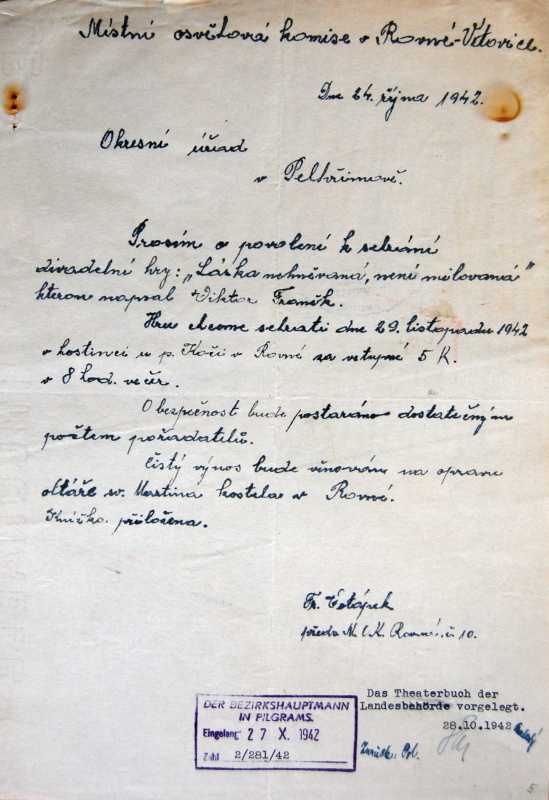 Místní osvětová komise v Rovné-Větovice.
Dne 24. října 1942.
Okresní úřad
v Pelhřimově.
Prosím o povolení k sehrání
divadelní hry: „Láska nehněvaná, není milovaná"
kterou napsal Viktor Franěk.
Hru chceme sehrati dne 29. listopadu 1942
v hostinci u p. Kočí v Rovné za vstupné 5 K.
v 8 hod. večer.
O bezpečnost bude postaráno dostatečným
počtem pořadatelů.
Čistý výnos bude věnován na opravu
oltáře sv. Martina kostela v Rovné.
Knížka přiložena.
Fr.
předs. M. O. K. Rovná č. 10.
DER BEZIRKSHAUPTMANN
IN PILGRAMS.
Eingelangt 27 X. 1942
Zahl 2/281/42
Das Theaterbuch der
Landesbehörde vorgelegt.
28.10.1942
5